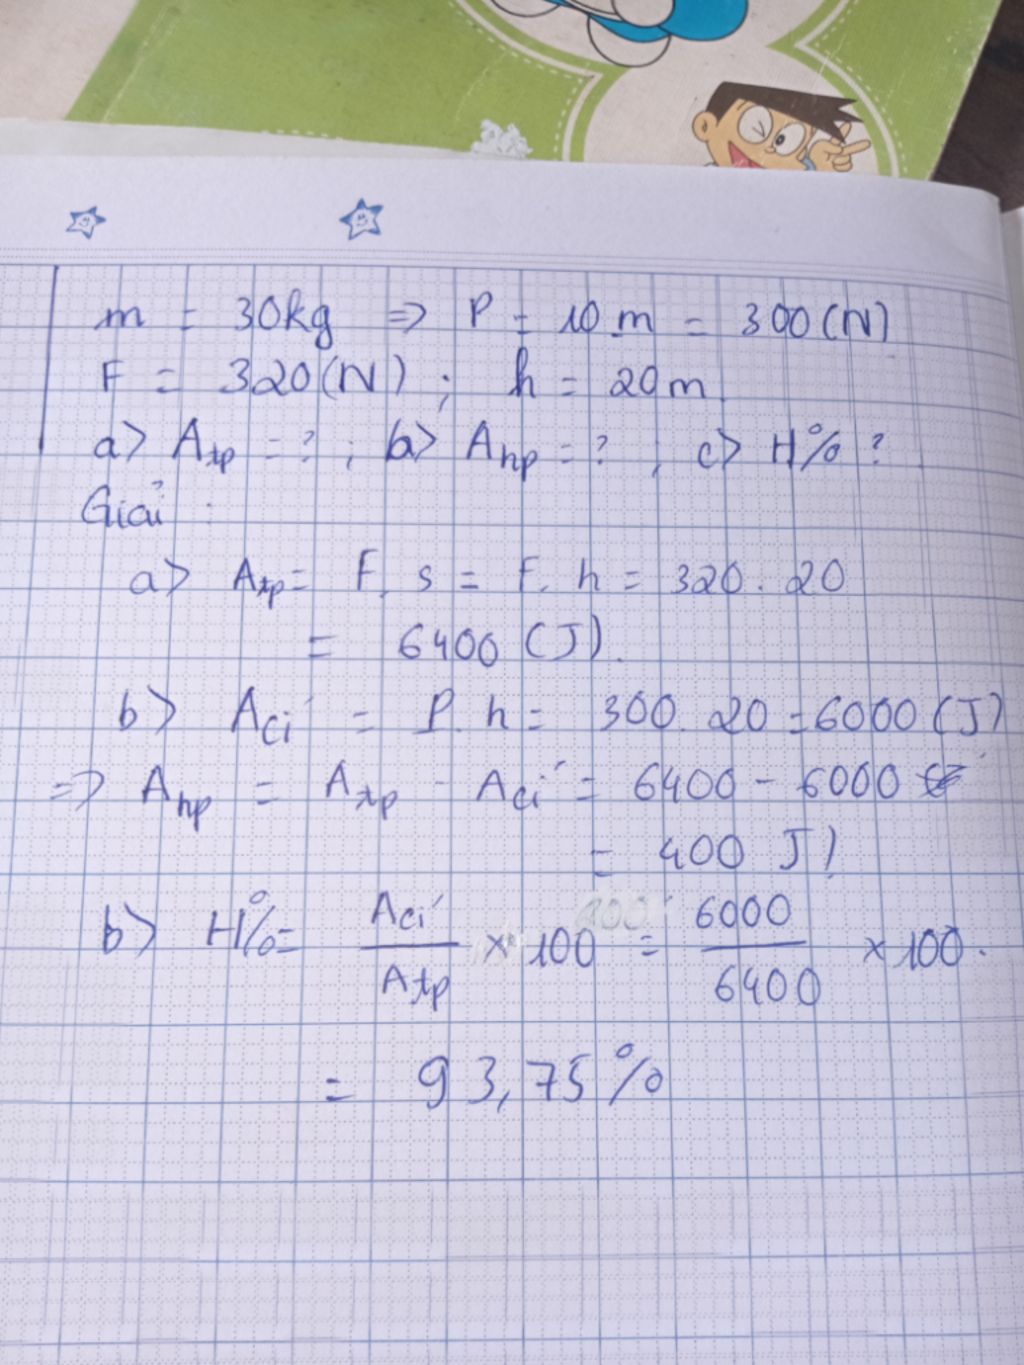 m = 30kg => P = 10.m = 300(N)
F = 320(N) ; h = 20m.
a> Atp = ? ; b> Ahp = ? ; c> H% ?
Giải :
a> Atp = F. s = F. h = 320 . 20
= 6400 (J).
b> Aci = P. h = 300. 20 = 6000 (J)
=> Ahp = Atp - Aci = 6400 - 6000
= 400 J)
b> H% = Aci / Atp x 100 = 6000 / 6400 x 100.
= 93,75%